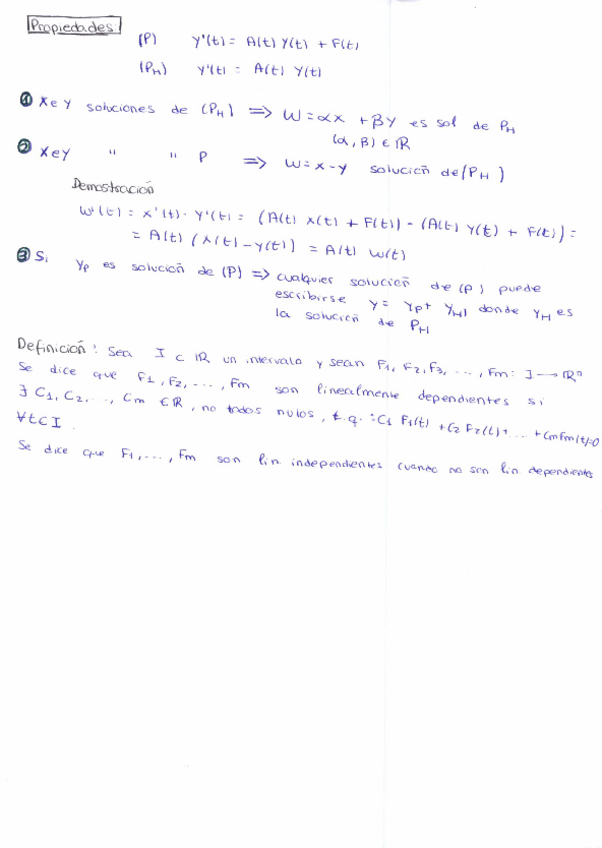 Propiedades:
(P) Y'(t) = A(t) Y(t) + F(t)
(PH) Y'(t) = A(t) Y(t)
① X e Y soluciones de (PH) ⟹ W = αX + βY es sol de PH
(α, β) ∈ ℝ
② X e Y " " P ⟹ W = X - Y solución de (PH)
Demostración
W'(t) = X'(t) - Y'(t) = (A(t) X(t) + F(t)) - (A(t) Y(t) + F(t)) =
= A(t) (X(t) - Y(t)) = A(t) W(t)
③ Si Yp es solución de (P) ⟹ cualquier solución de (P) puede
escribirse Y = Yp + YH donde YH es
la solución de PH
Definición: Sea I ⊂ ℝ un intervalo y sean F1, F2, F3, ..., Fm: I → ℝⁿ
Se dice que F1, F2, ..., Fm son linealmente dependientes si
∃ C1, C2, ..., Cm ∈ ℝ, no todos nulos, t.q.: C1 F1(t) + C2 F2(t) + ... + CmFm(t)=0
∀t ⊂ I.
Se dice que F1, ..., Fm son lin independientes cuando no son lin dependientes